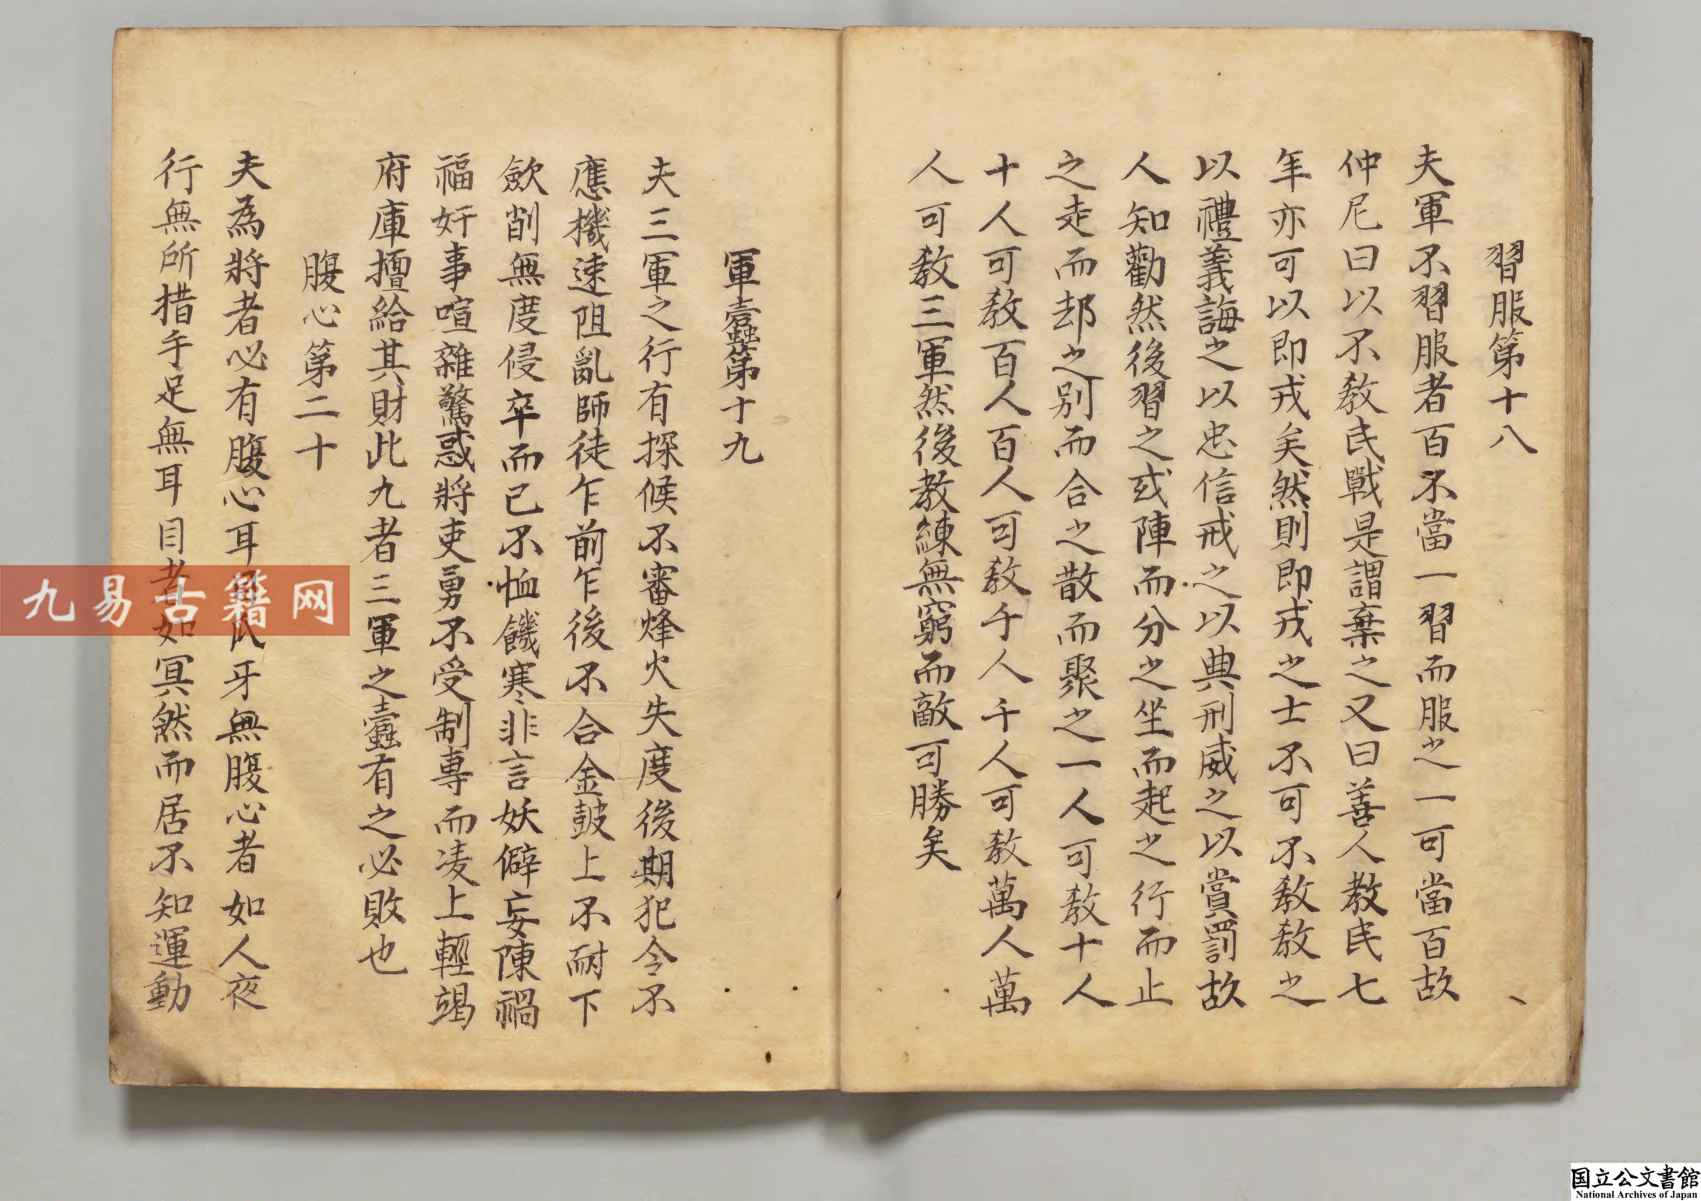 習服第十八
夫軍不習服者百不當一習而服之一可當百故
仲尼曰以不教民戰是謂棄之又曰善人教民七
年亦可以即戎矣然則即戎之士不可不教教之
以禮義誨之以忠信戒之以典刑威之以賞罰故
人知勸然後習之或陣而分之坐而起之行而止
之走而却之別而合之散而聚之一人可教十人
十人可教百人百人可教千人千人可教萬人萬
人可教三軍然後教練無窮而敵可勝矣
軍蠹第十九
夫三軍之行有探候不審烽火失度後期犯令不
應機速阻亂師徒乍前乍後不合金鼓上不耐下
歛削無度侵卒而已不恤饑寒非言妖僻妄陳禍
福奸事喧雜驚惑將吏勇不受制專而凌上輕竭
府庫擅給其財此九者三軍之蠹有之必敗也
腹心第二十
夫為將者必有腹心耳牙無腹心者如人夜
行無所措手足無耳目者如冥然而居不知運動
九易古籍网
国立公文書館
National Archives of Japan